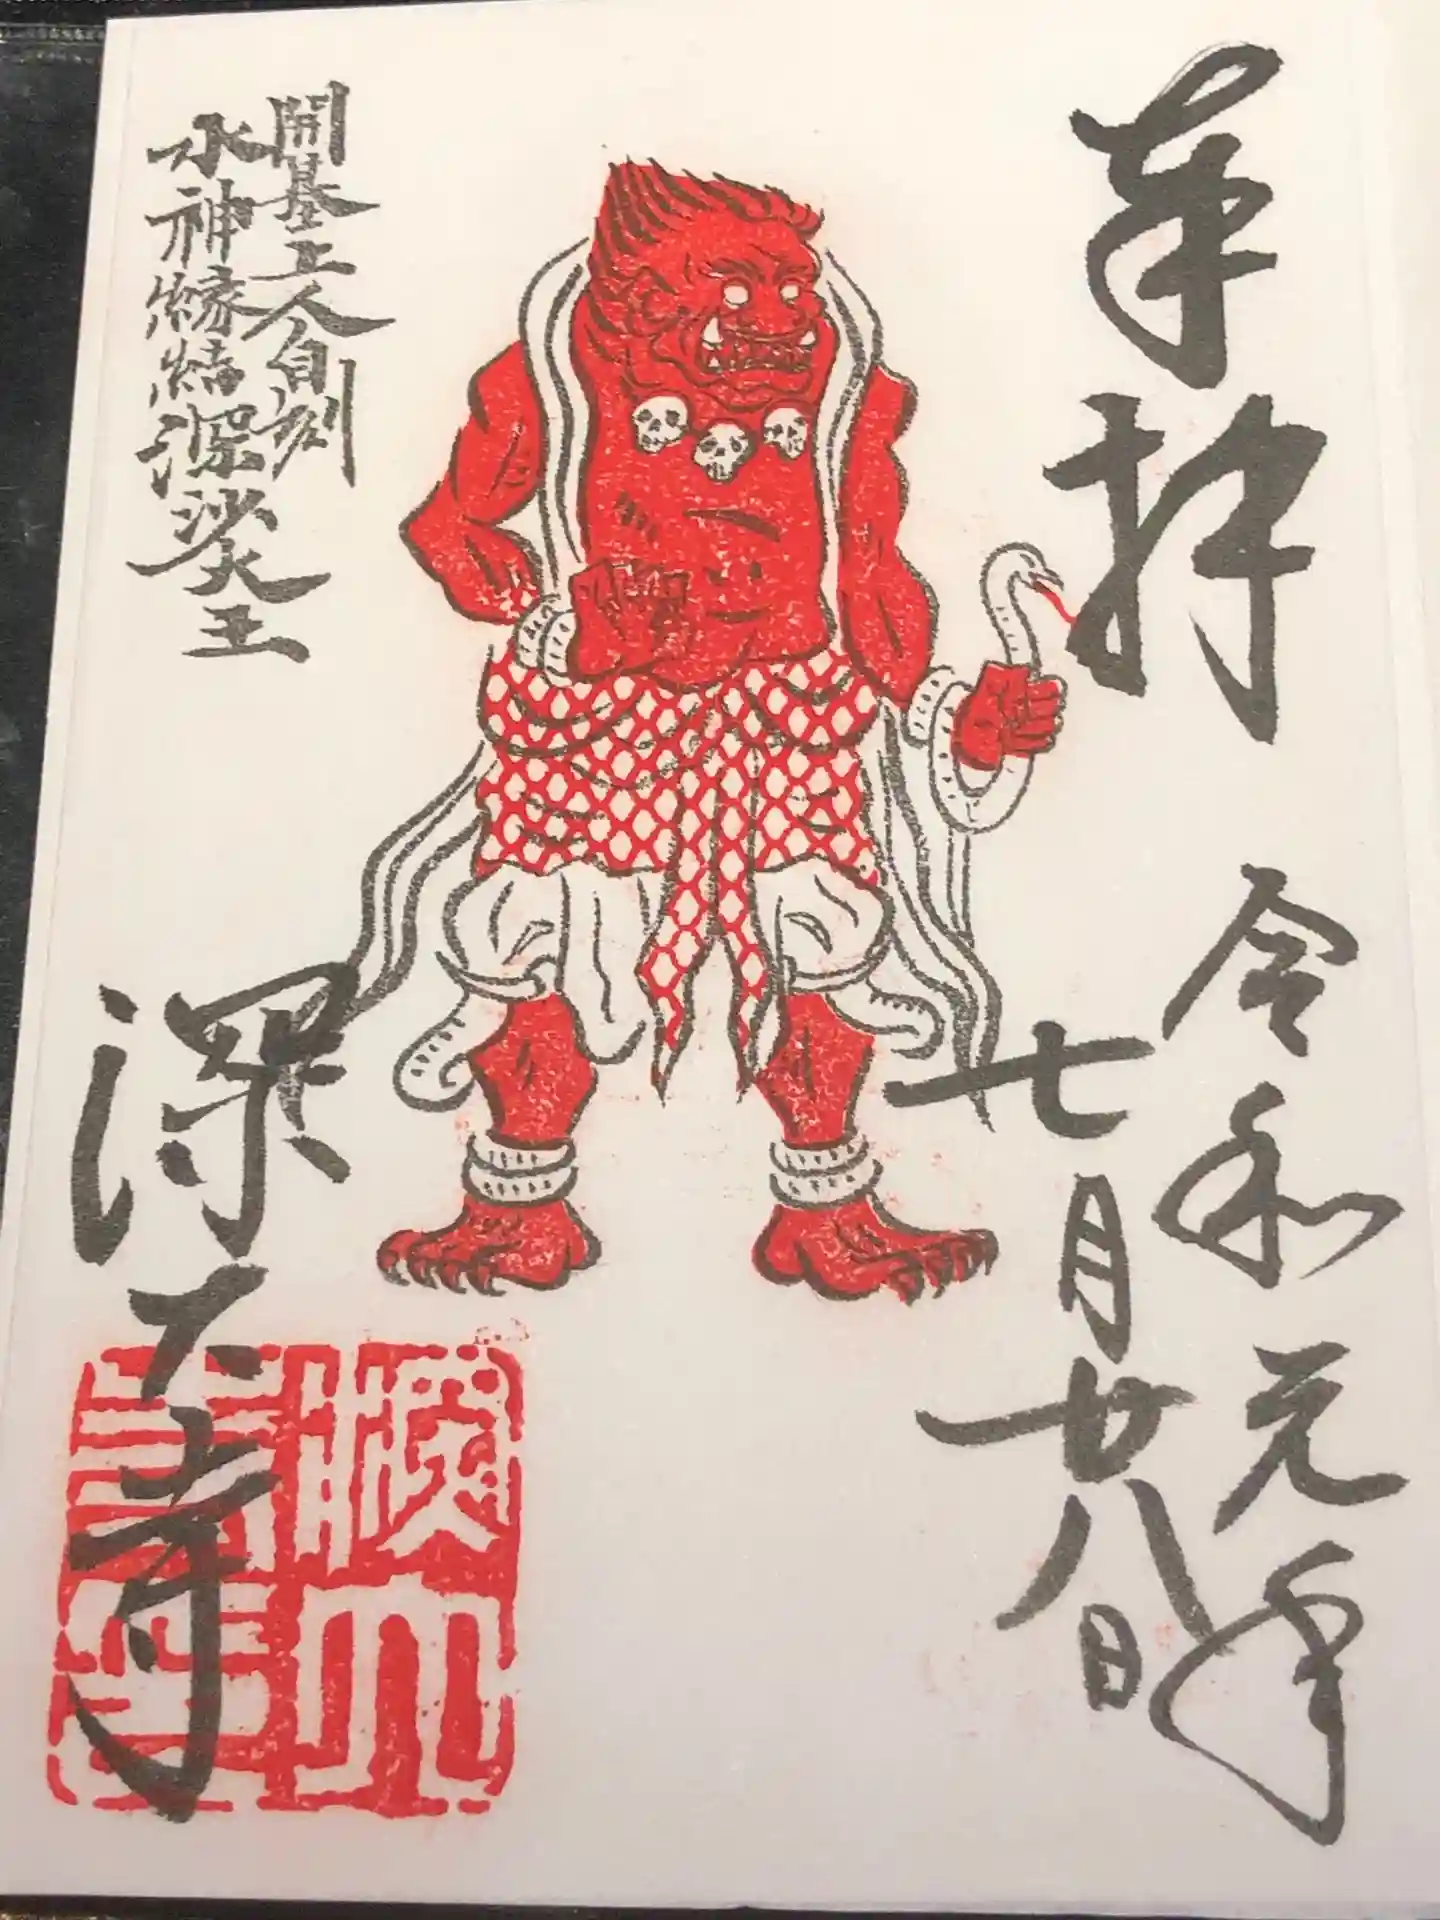 奉拝
令和元年
七月廿八日
開基上人自刻
水神縁結深沙大王
深大寺